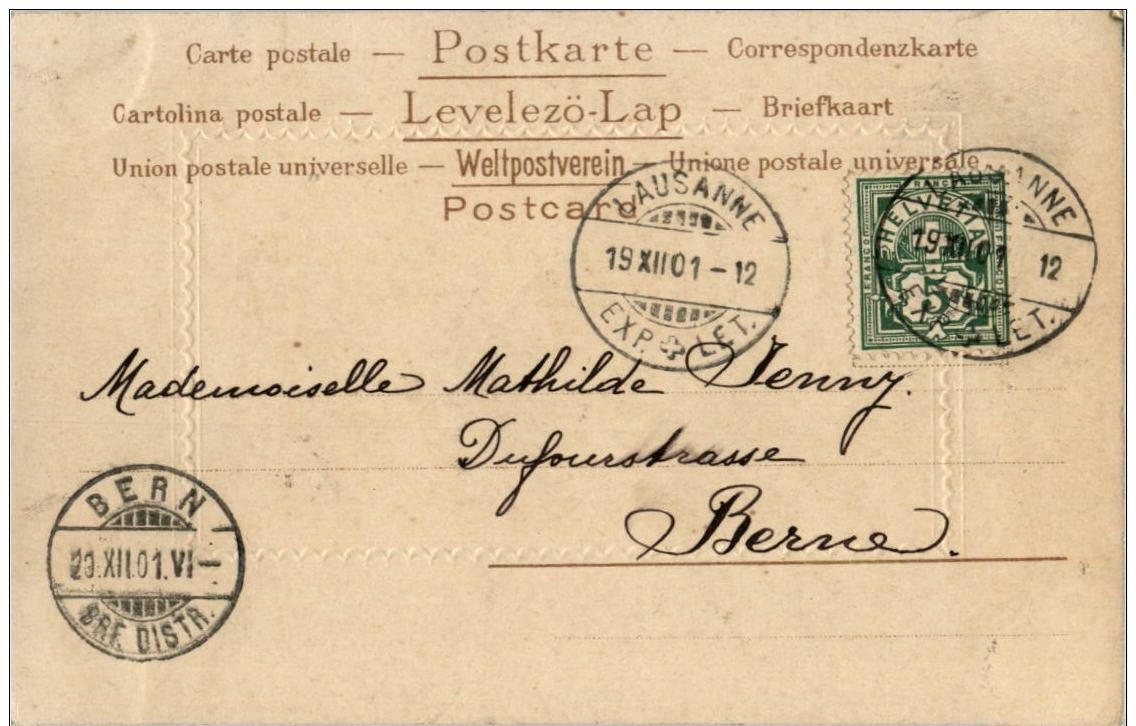 Carte postale — Postkarte — Correspondenzkarte
Cartolina postale — Levelezö-Lap — Briefkaart
Union postale universelle — Weltpostverein — Unione postale universale
Postcard
LAUSANNE
19 XII 01 - 12
EXP. LET.
LAUSANNE
19 XII 01 12
EXP. LET.
FRANCO
HELVETIA
FRANCO
5
Mademoiselle Mathilde Jenny.
Dufourstrasse
Berne.
BERN
XII.01.VI -
BRF. DISTR.